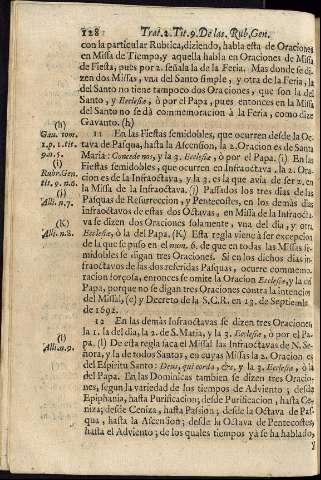 128 Trat.2.Tit.9.De las Rub.Gen.
con la particular Rubrica, diziendo, habla esta de Oraciones
en Missa de Tiempo, y aquella habla en Oraciones de Missa
de Fiesta, pues por 2. señala la de la Feria. Mas donde se di-
zen dos Missas, vna del Santo simple, y otra de la Feria, la
del Santo no tiene tampoco dos Oraciones, que son la del
Santo, y Ecclesiæ, ò por el Papa, pues entonces en la Missa
del Santo no se dà commemoracion à la Feria, como dize
Gavanto. (h)
(h)
Gau. tom.
1.p.1.tit.
9.n.5.
(i)
Rubr.Gen.
tit.9.n.6.
(j)
Alli.n.7.
(K)
Alli.n.8.
11 En las Fiestas semidobles, que ocurren desde la Oc-
tava de Pasqua, hasta la Ascension, la 2. Oracion es de Santa
Maria: Concede nos, y la 3. Ecclesiæ, ò por el Papa. (i) En las
Fiestas semidobles, que ocurren en Infraoctava, la 2. Ora-
cion es de la Infraoctava, y la 3. es la que avia de ser 2. en
la Missa de la Infraoctava. (j) Passados los tres dias de las
Pasquas de Resurreccion, y Pentecostes, en los demàs dias
infraoctavos de estas dos Octavas, en Missa de la Infraocta-
va se dizen dos Oraciones solamente, vna del dia, y otra
Ecclesiæ, ò la del Papa. (K) Esta regla viene à ser excepcion
de la que se puso en el num. 6. de que en todas las Missas se-
midobles se digan tres Oraciones. Si en los dichos dias in-
fraoctavos de las dos referidas Pasquas, ocurre commemo-
racion forçosa, entonces se omite la Oracion Ecclesiæ, y la del
Papa, porque no se digan tres Oraciones contra la intencion
del Missal, (c) y Decreto de la S.C.R. en 13. de Septiemb.
de 1692.
(l)
Alli.n.9.
12 En las demàs Infraoctavas se dizen tres Oraciones,
la 1. la del dia, la 2. de S. Maria, y la 3. Ecclesiæ, ò por el Pa-
pa. (l) De esta regla saca el Missal las Infraoctavas de N. Se-
ñora, y la de todos Santos, en cuyas Missas la 2. Oracion es
del Espiritu Santo: Deus, qui corda, &c, y la 3. Ecclesiæ, ò la
del Papa. En las Dominicas tambien se dizen tres Oracio-
nes, segun la variedad de los tiempos de Adviento; desde
Epiphania, hasta Purificacion; desde Purificacion, hasta Ce-
niza; desde Ceniza, hasta Passion; desde la Octava de Pas-
qua, hasta la Ascension; desde la Octava de Pentecostes,
hasta el Adviento; de los quales tiempos yà se ha hablado,